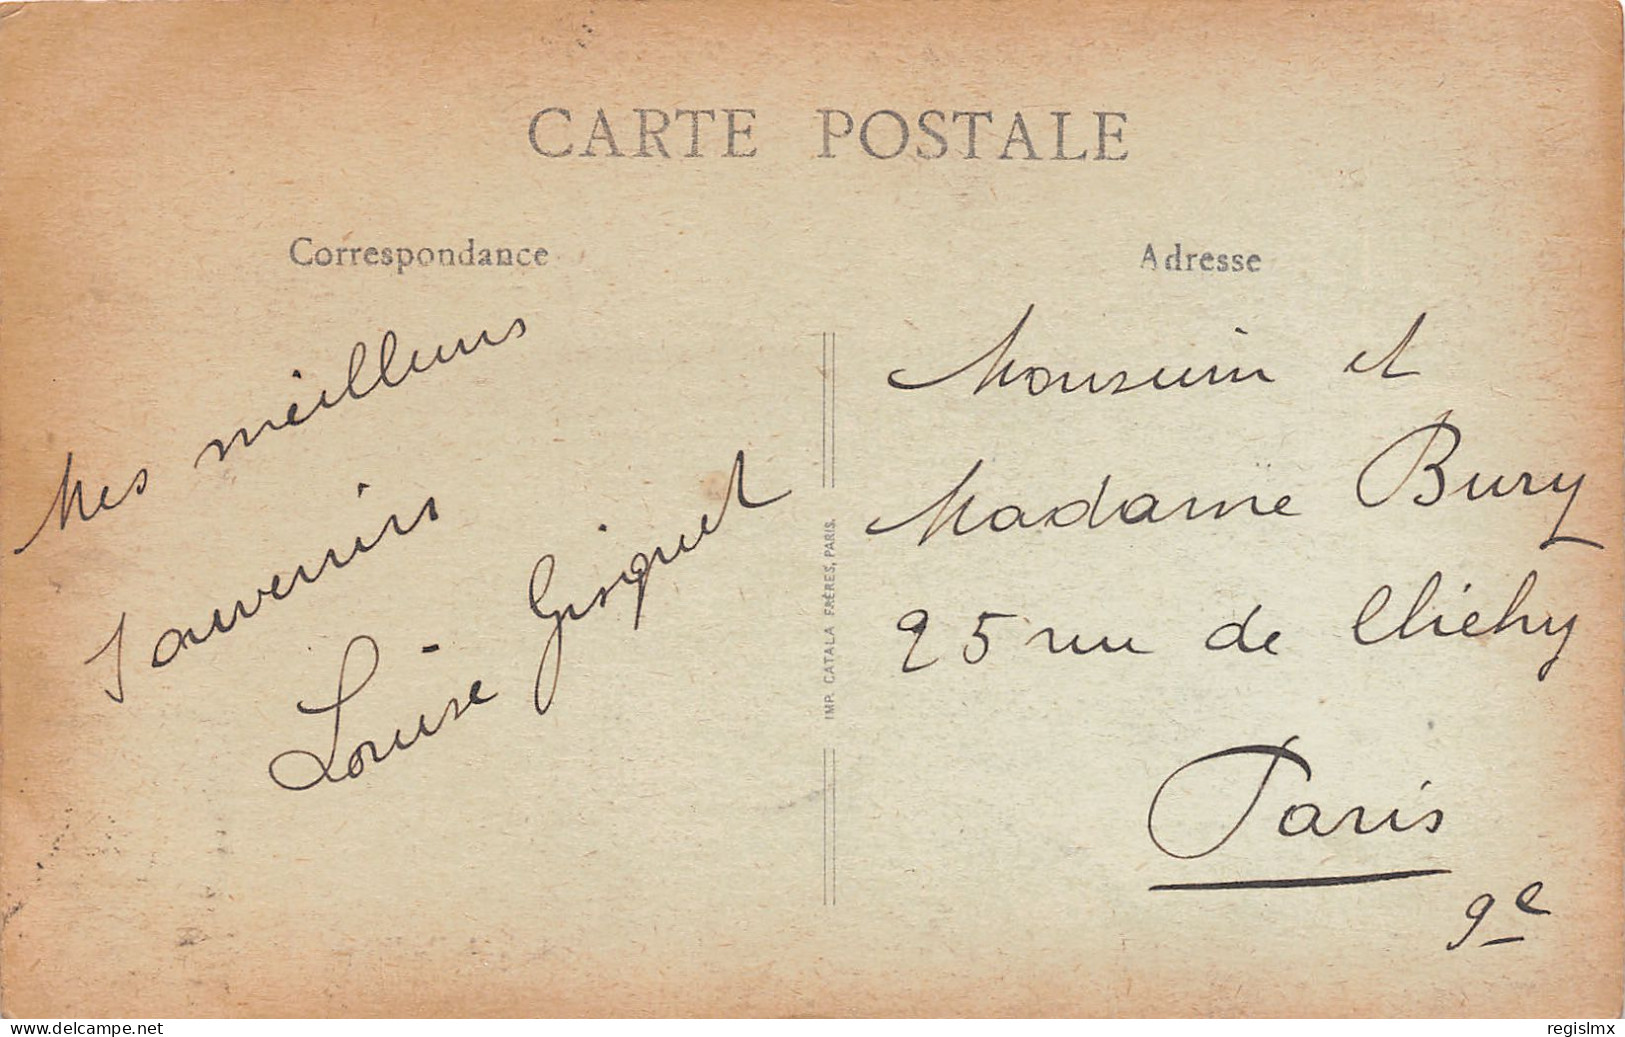 CARTE POSTALE
Correspondance
Mes meilleurs
souvenirs
Louise Gisquet
IMP. CATALA FRÈRES, PARIS.
Adresse
Monsieur et
Madame Bury
25 rue de Clichy
Paris
9e
www.delcampe.net
regislmx